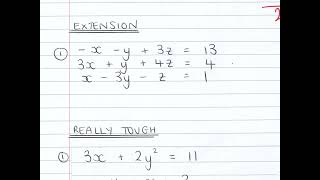 EXTENSION
① -x -y + 3z = 13
3x + y + 4z = 4
x - 3y - z = 1
REALLY TOUGH
① 3x + 2y² = 11